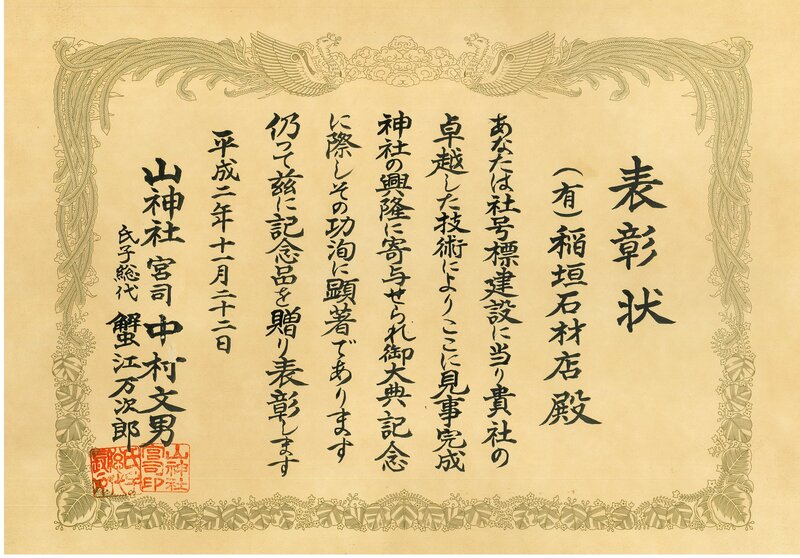 表彰状
(有)稲垣石材店 殿
あなたは社号標建設に当り貴社の
卓越した技術によりここに見事完成
神社の興隆に寄与せられ御大典記念
に際しその功洵に顕著であります
仍って茲に記念品を贈り表彰します
平成二年十一月二十二日
山神社 宮司 中村文男
氏子総代 蟹江万次郎
山神社
宮司印